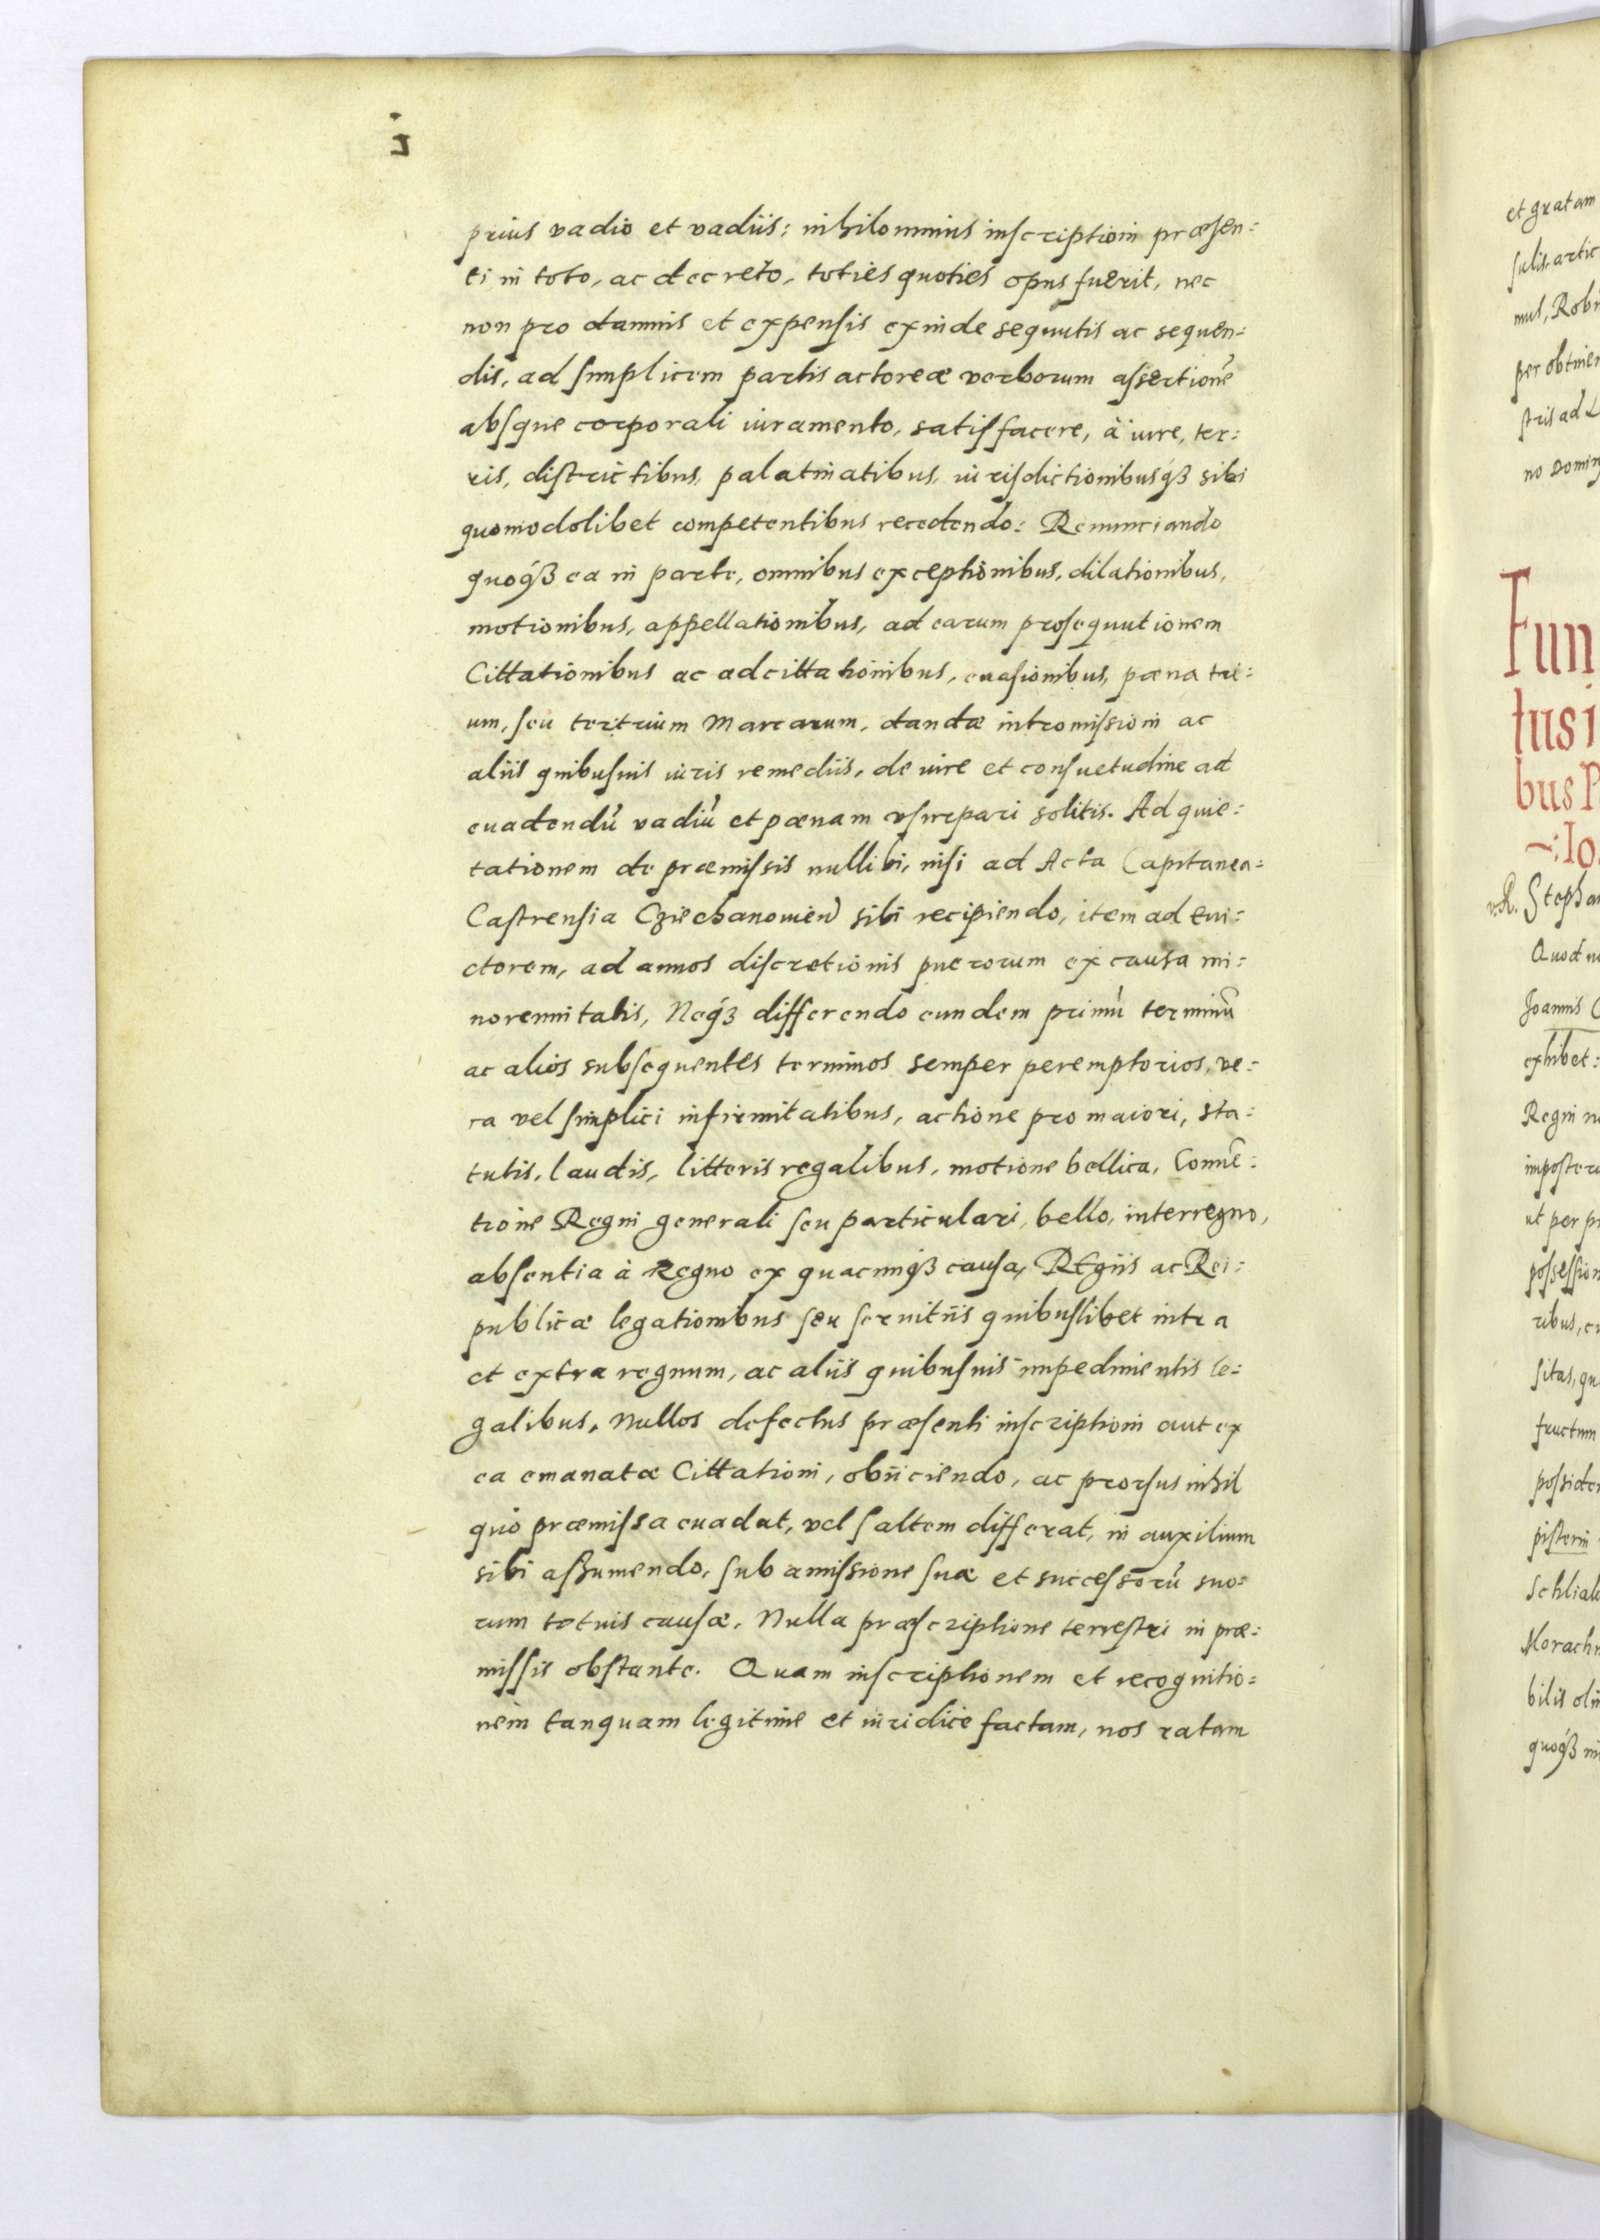 prius vadio et vadiis: nihilominus inscriptioni præsen:
ti in toto, ac decreto, toties quoties opus fuerit, nec
non pro damnis et expensis exinde sequutis ac sequen:
dis, ad simplicem partis actoreæ verborum assertionē
absque corporali iuramento, satisfacere, à iure, ter:
ris, districtibus, palatinatibus, iurisdictionibusq́ꝫ sibi
quomodolibet competentibus recedendo: Renunciando
quoq́ꝫ ea in parte, omnibus exceptionibus, dilationibus,
motionibus, appellationibus, ad earum prosequutionem
Cittationibus ac adcittationibus, euasionibus, pœna tri:
um, seu tertrium Marcarum, dandæ intromissioni ac
aliis quibusuis iuris remediis, de iure et consuetudine ad
euadendū vadiū et pœnam vsurpari solitis. Ad quie:
tationem de præmissis nullibi, nisi ad Acta Capitanea:
Castrensia Cziechanouien) sibi recipiendo, item ad eui:
ctorem, ad annos discretionis puerorum ex causa mi:
norennitatis, Neq́ꝫ differendo eundem primū terminū
ac alios subsequentes terminos semper peremptorios, ve:
ra vel simplici infirmitatibus, actione pro maiori, sta:
tutis, laudis, litteris regalibus, motione bellica, Conuē:
tione Regni generali seu particulari, bello, interregno,
absentia à Regno ex quacunq́ꝫ causa, Regiis ac Rei:
publicæ legationibus seu seruitiis quibuslibet intra
et extra regnum, ac aliis quibusuis impedimentis le:
galibus, Nullos defectus præsenti inscriptioni aut ex
ea emanatæ Cittationi, obiiciendo, ac prorsus nihil
quo præmissa euadat, vel saltem differat, in auxilium
sibi assumendo, sub amissione suæ et successorū suo:
rum totius causæ. Nulla præscriptione terrestri in præ:
missis obstante. Quam inscriptionem et recognitio:
nem tanquam legitime et iuridice factam, nos ratam
et gratam
mus, Rob
per obtinen
stris ad
no Domin
Fun
tus i
bus P
~:Io
Stepha
Quod
Joannis
exhibet:
Regni
ut per
possession
ribus,
sitas, qu
fructum
possiden
pisterin
Schliak
Morach
bilis oli
quoq́ꝫ